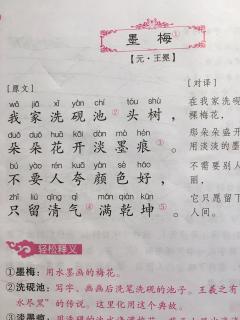 墨梅①
【元·王冕】
[原文]
[对译]
wǒ jiā xǐ yàn chí tóu shù
我家洗砚池②头树，
在我家洗
棵梅花，
duǒ duǒ huā kāi dàn mò hén
朵朵花开淡墨痕③。
那朵朵盛开
用淡淡的墨
bú yào rén kuā yán sè hǎo
不要人夸颜色好，
不需要别人
丽，
zhǐ liú qīng qì mǎn qián kūn
只留清气④满乾坤⑤。
它只愿留下
人间。
轻松释义
①墨梅：用水墨画的梅花。
②洗砚池：写字、画画后洗笔洗砚的池子。王羲之有“
水尽黑”的传说。这里化用这个典故。
③淡墨痕：